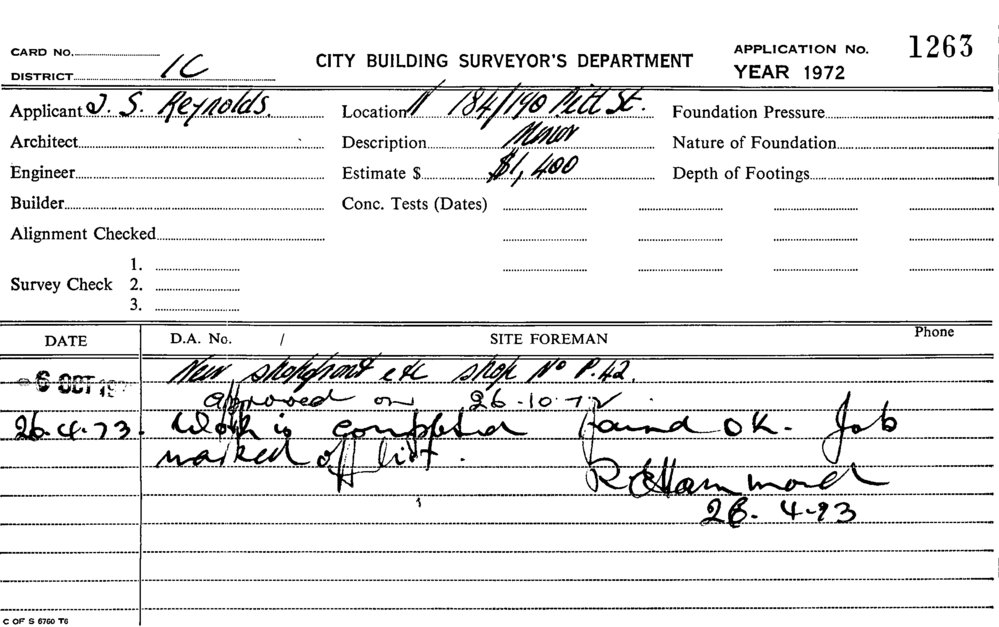 CARD No.
DISTRICT 1C
CITY BUILDING SURVEYOR'S DEPARTMENT
APPLICATION No. 1263
YEAR 1972
Applicant J. S. Reynolds.
Location 184/190 Pitt St.
Foundation Pressure
Architect
Description Minor
Nature of Foundation
Engineer
Estimate $ $1,400
Depth of Footings
Builder
Conc. Tests (Dates)
Alignment Checked
Survey Check 1.
2.
3.
DATE D.A. No. / SITE FOREMAN Phone
6 OCT 197 New shopfront etc shop No P.42.
approved on 26-10-72.
26.4.73. Work is completed found OK. Job
marked off list.
R Hammond
26.4.73
C OF S 6760 T6